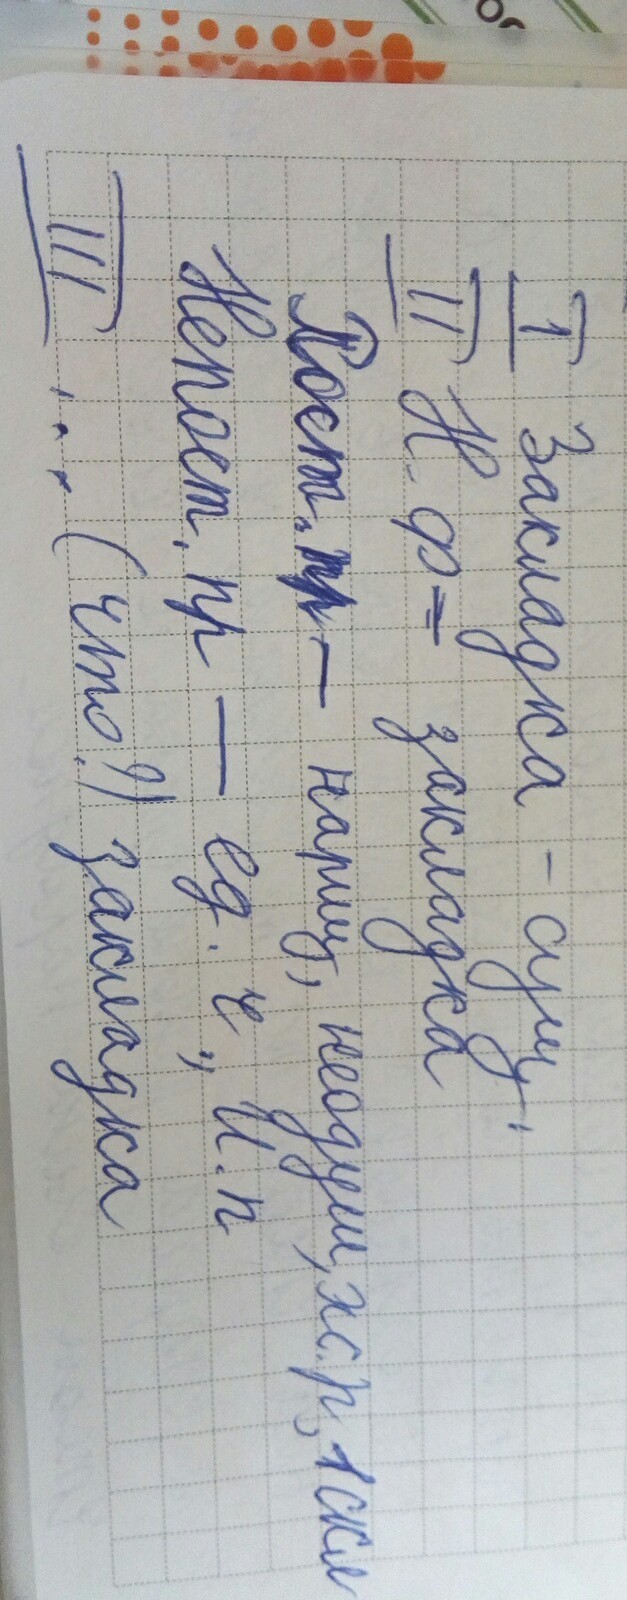 I Закладка - сущ,
II Н. ф = закладка
Пост. пр - нариц, неодуш, ж.р, 1 скл
Непост. пр - ед. ч, И. п
III ... (что?) закладка